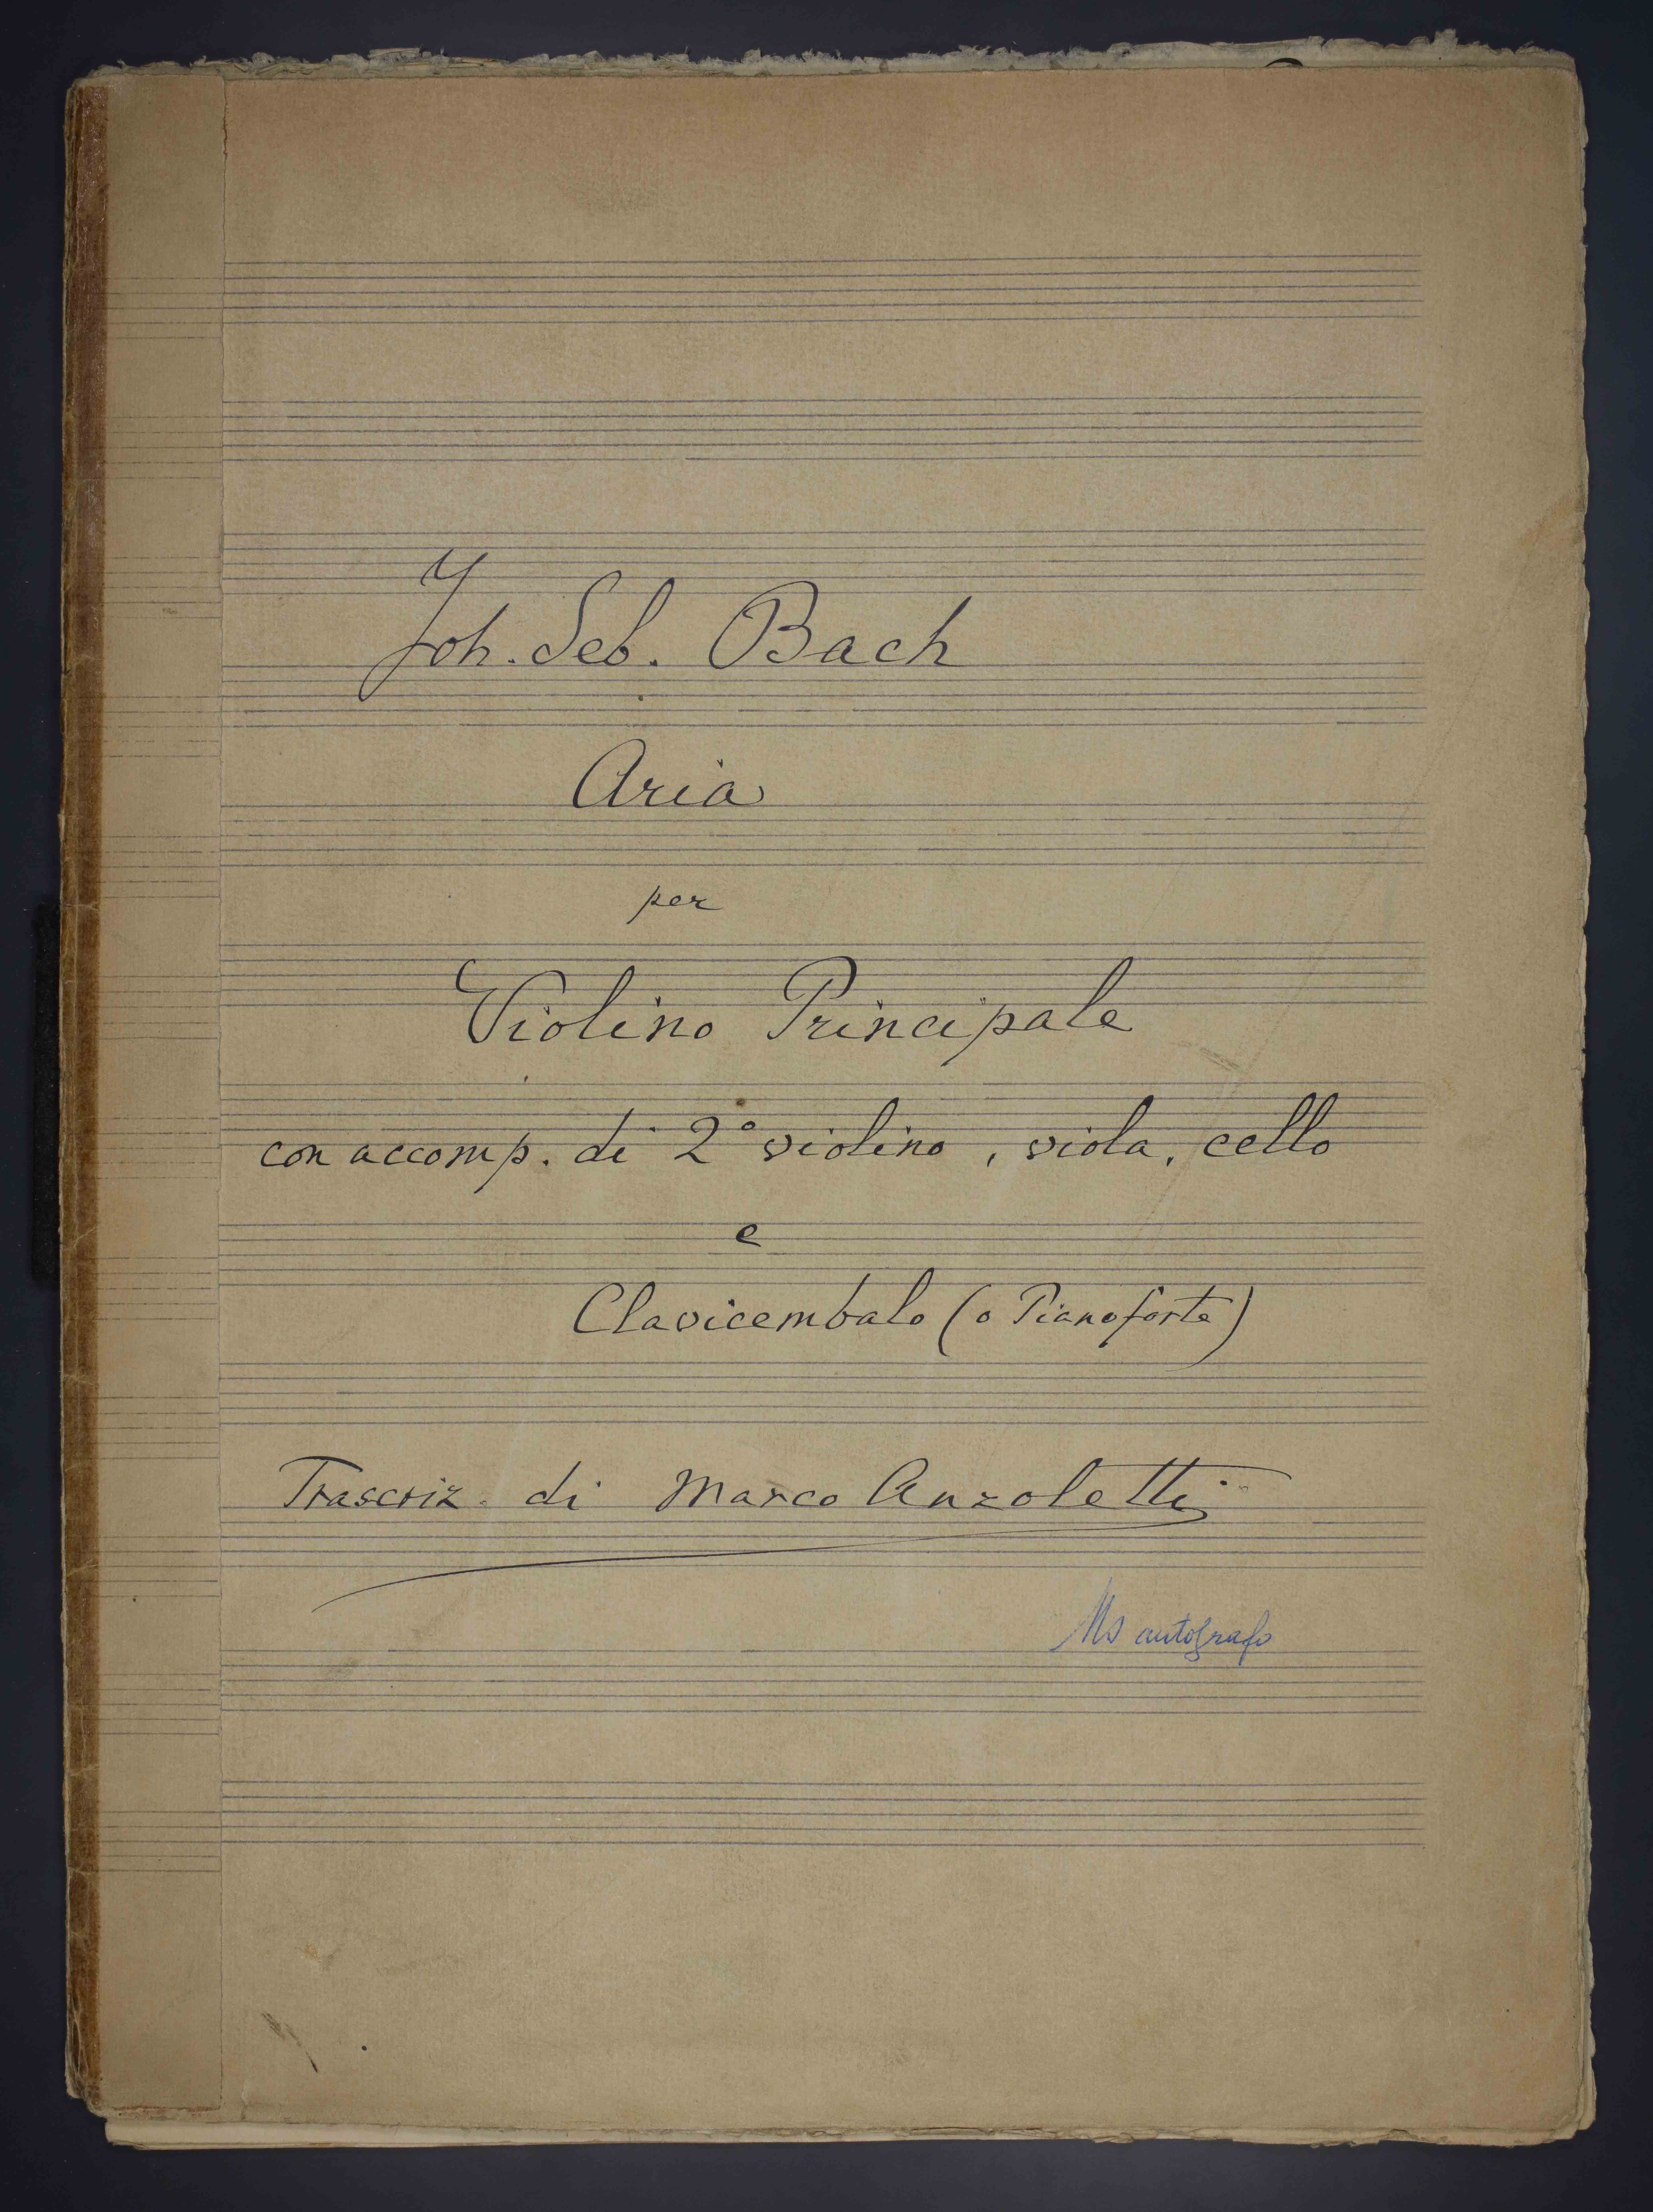 Joh. Seb. Bach
Aria
per
Violino Principale
con accomp. di 2° violino, viola, cello
e
Clavicembalo (o Pianoforte)
Trascriz. di Marco Anzoletti
Ms autografo